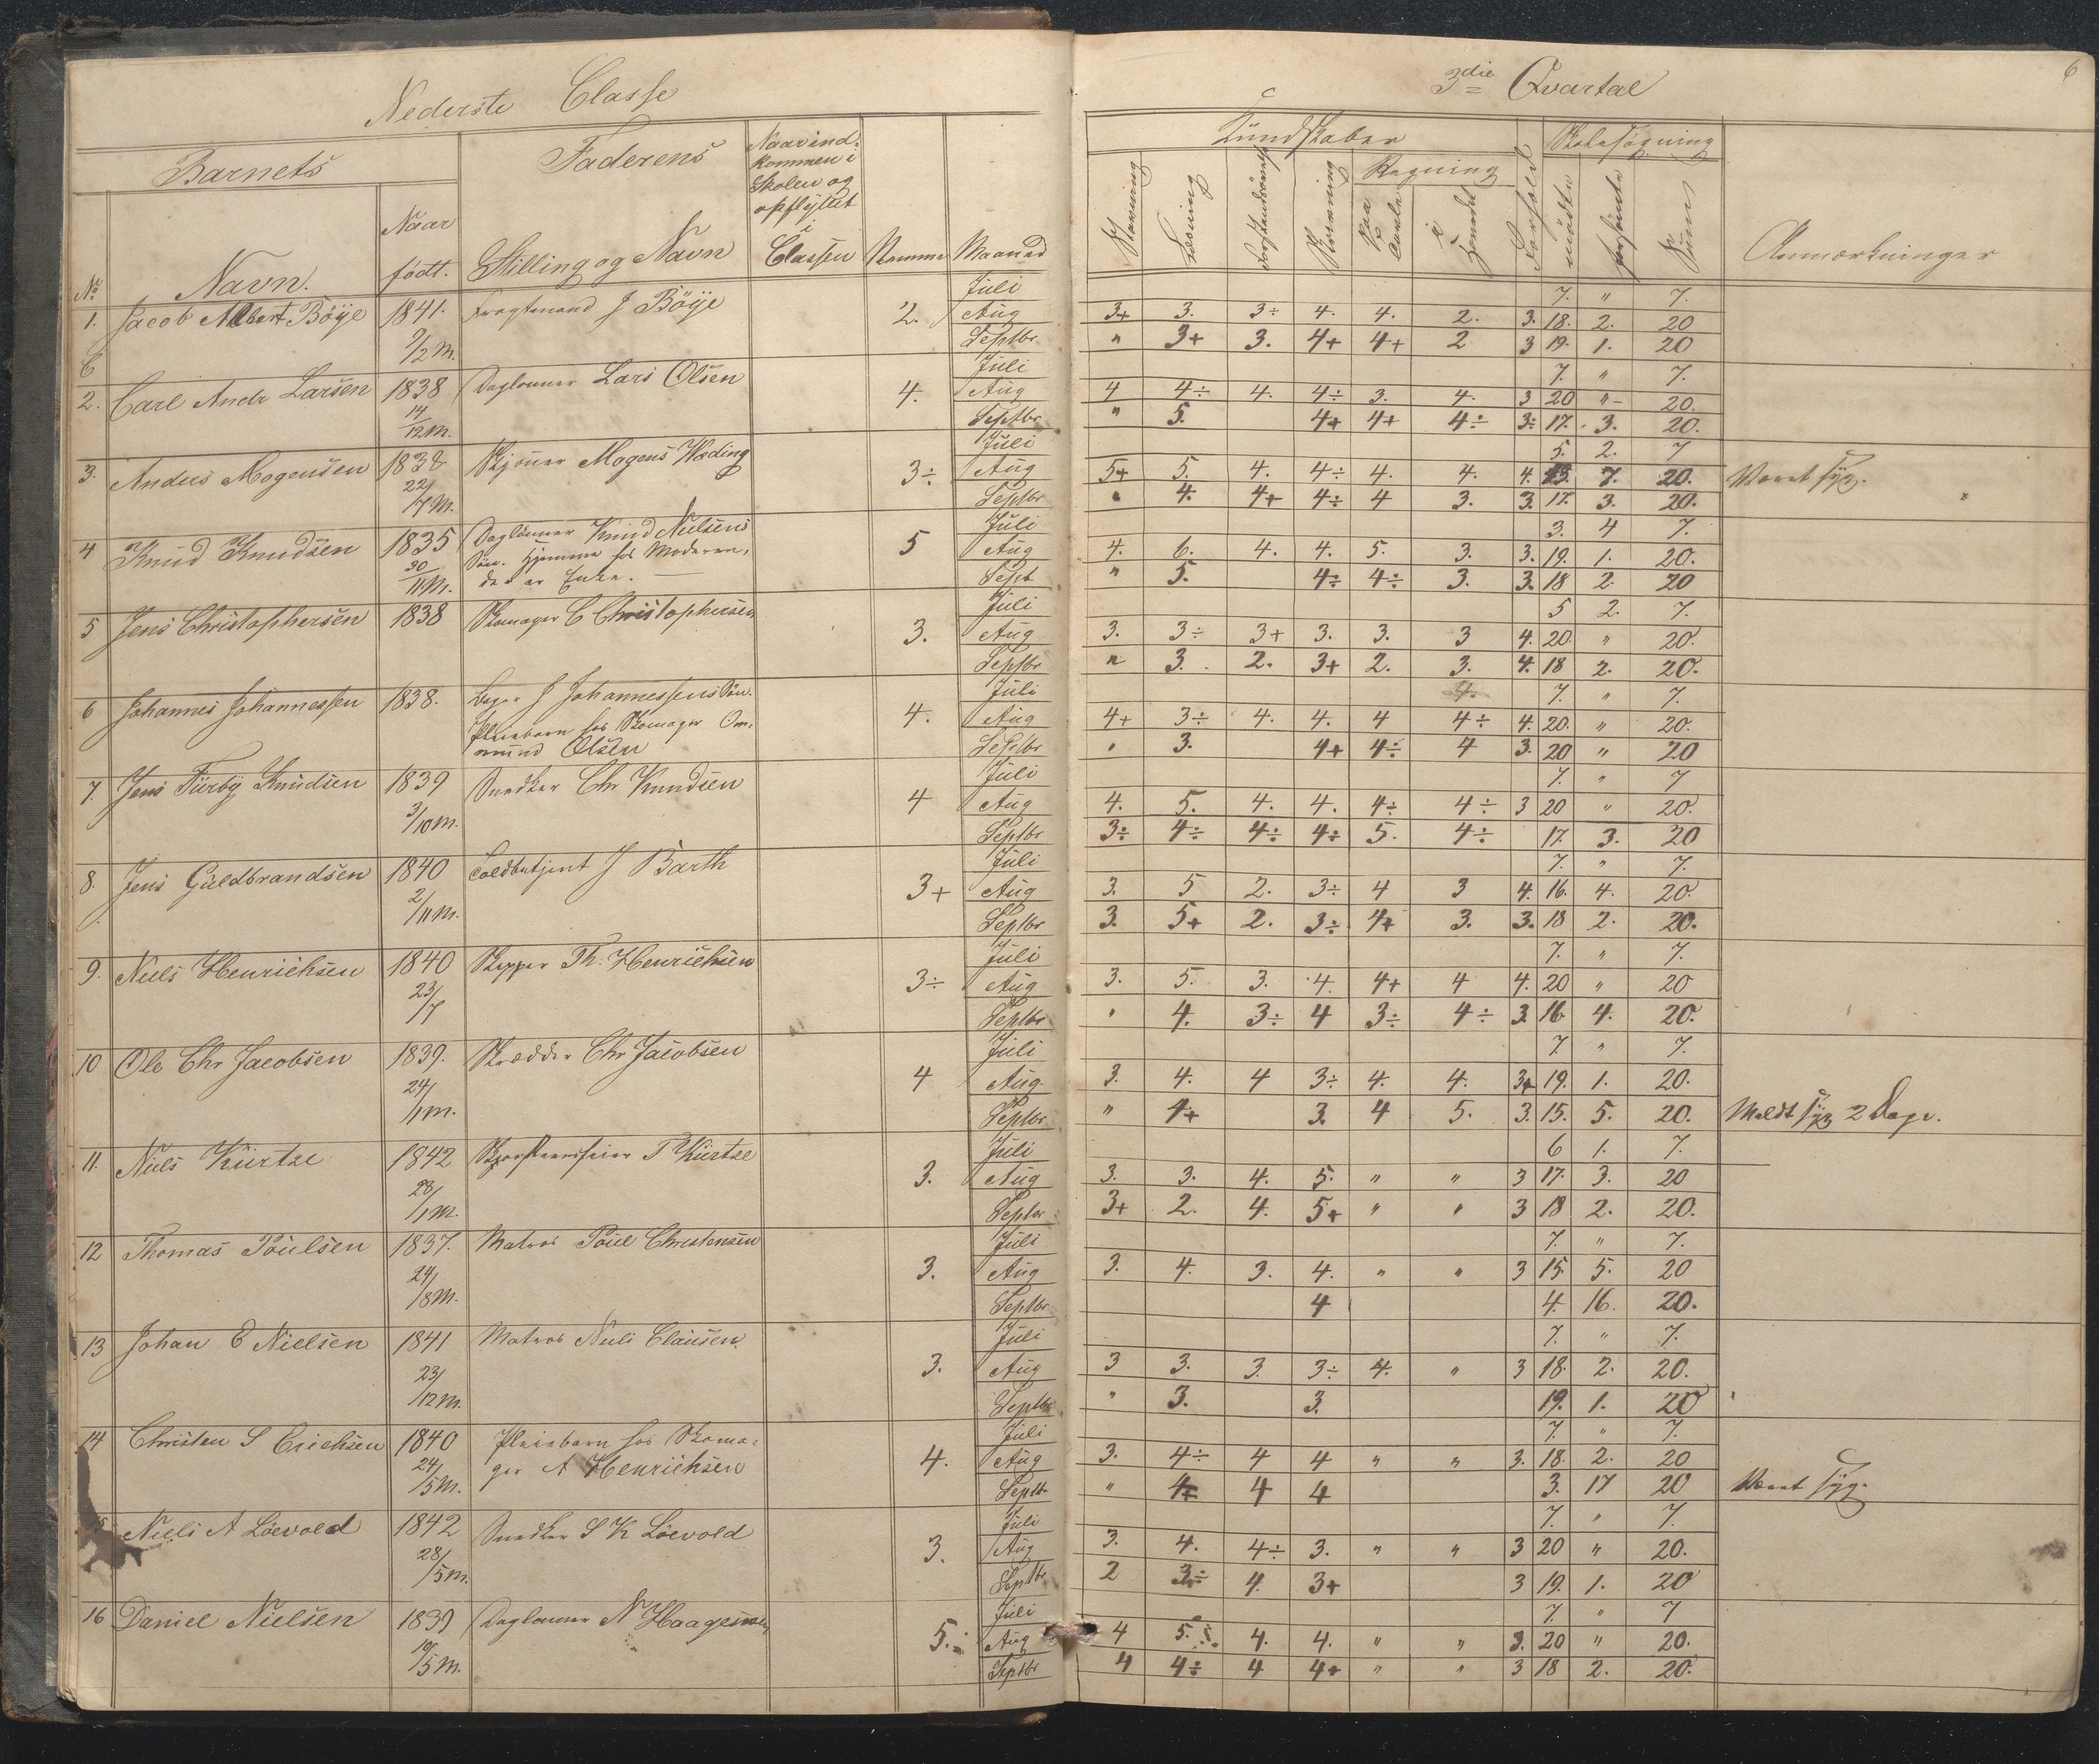 Nederste Classe
Barnets
Faderens
Naar ind-
kommen i
Skolen og
opflyttet
i
Classen
No
Navn.
Naar
født.
Stilling og Navn
Maaned
1. Jacob Albert Böye 1841. Fragtmand J Böye 2. Juli
9/2 M. Aug
Septbr.
2. Carl Andr Larsen 1838 Daglønner Lars Olsen 4. Juli
14/12 M. Aug
Septbr.
3. Anders Mogensen 1838 Mogens Wæding 3÷ Juli
22/7 M. Aug
Septbr
4 Knud Knudsen 1835 Daglønner Knud Nielsens 5 Juli
30/11 M. Søn. Hjemme hos Moderen, Aug
der er Enke. Sept
5 Jens Christophersen 1838 Skomager C Christophersen 3. Juli
Aug
Septbr
6 Johannes Johannessen 1838. J Johannessens Søn. 4. Juli
Pleiebarn hos Skomager Om- Aug
mund Olsen Septbr
7. Jens Fürby Knudsen 1839 Snedker Chr Knudsen 4 Juli
3/10 M. Aug
Septbr
8. Jens Guldbrandsen 1840 Toldbetjent J Barth 3+ Juli
2/11 M. Aug
Septbr
9. Niels Henrichsen 1840 Skipper Th. Henrichsen 3÷ Juli
23/7 Aug
Septbr
10 Ole Chr Jacobsen 1839. Skrædder Chr Jacobsen 4 Juli
24/1 M. Aug.
Septbr.
11. Niels Kürtze 1842 Skorsteensfeier T Kürtze 3. Juli
28/1 M. Aug
Septbr
12 Thomas Poulsen 1837. Matros Poul Christensen 3. Juli
24/8 M. Aug
Septbr
13 Johan E Nielsen 1841 Matros Niels Clausen. 3. Juli
23/12 M. Aug
Septbr
14 Christen S Erichsen 1840 Pleiebarn hos Skoma- 4. Juli
24/5 M. ger A Henrichsen Aug
Septbr
Niels A Löevold 1842 Snedker S K Löevold 3. Juli
28/5 M. Aug
Septbr
16 Daniel Nielsen 1839 Daglønner N Haagensen 5. Juli
19/5 M. Aug
Septbr
6
3die Qvartal
Kundskaber
Skolesøgning
Stavning
Læsning
Forstandsøvelse
Skrivning
Regning
Paa Tavle
i Hovedet
Forhold
mødte
forsømte
Sum
Anmærkninger
7. " 7.
3+ 3. 3÷ 4. 4. 2. 3. 18. 2. 20
" 3+ 3. 4+ 4+ 2 3 19. 1. 20
7. " 7.
4 4÷ 4. 4÷ 3. 4. 3 20 " 20.
" 5. 4+ 4+ 4÷ 3÷ 17. 3. 20.
5. 2. 7
5+ 5. 4. 4÷ 4. 4. 4. 13. 7. 20. Været syg.
" 4. 4+ 4÷ 4 3. 3. 17. 3. 20.
3. 4 7.
4. 6. 4. 4. 5. 3. 3. 19. 1. 20.
" 5. 4÷ 4÷ 3. 3. 18 2. 20
5 2. 7.
3. 3÷ 3+ 3. 3. 3 4. 20. " 20.
" 3. 2. 3+ 2. 3. 4. 18 2. 20.
7. " 7.
4+ 3÷ 4. 4. 4 4÷ 4. 20. " 20.
" 3. 4+ 4÷ 4 3. 20 " 20
7. " 7
4. 5. 4. 4. 4÷ 4÷ 3 20 " 20.
3÷ 4÷ 4÷ 4÷ 5. 4÷ 17. 3. 20
7. " 7.
3. 5 2. 3÷ 4 3 4. 16. 4. 20.
3. 5+ 2. 3÷ 4+ 3. 3. 18 2. 20.
7. " 7.
3. 5. 3. 4. 4+ 4 4. 20 " 20
" 4. 3÷ 4 3÷ 4÷ 3. 16. 4. 20.
7. " 7.
3. 4. 4 3÷ 4. 4. 3+ 19. 1. 20.
" 4+ 3. 4 5. 3. 15. 5. 20. Meldt syg 2 Dage.
6 1. 7.
3. 3. 4. 5. " " 3 17. 3. 20
3+ 2. 4. 5+ " " 3 18 2. 20.
7. " 7.
3. 4. 3. 4. " " 3 15. 5. 20
4 4. 16. 20.
7. " 7.
3 3. 3. 3÷ 4. " 3 18. 2. 20.
" 3. 3. 19. 1. 20
7. " 7.
3. 4÷ 4 4 " " 3. 18. 2. 20
" 4 4 3. 17 20 Været syg.
7. " 7.
3. 4. 4÷ 3. " " 3 20 " 20.
2 3÷ 4. 3+ 3 19. 1. 20
7. " 7
4 5. 4. 4. " " 3. 20 " 20.
4 4÷ 4 4+ " " 3 18 2. 20.